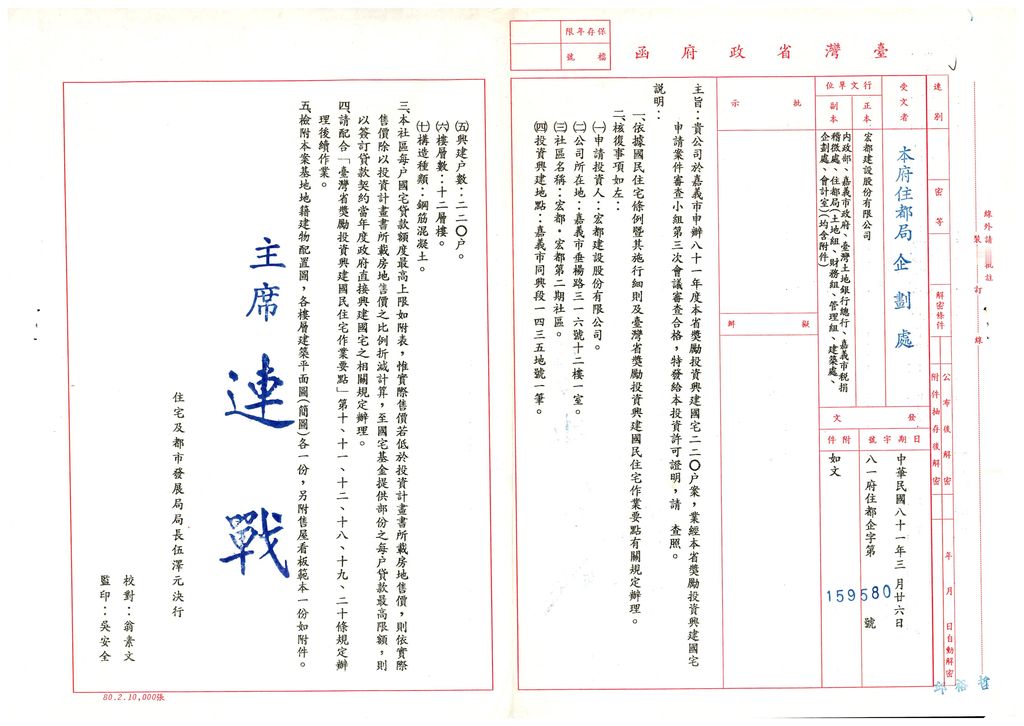 臺灣省政府函
保存年限
檔號
速別
密等
解密條件
公布後解密
附件抽存後解密
年 月 日自動解密
線外請
批註
裝
訂
線
受文者
本府住都局企劃處
行文單位
正本
宏都建設股份有限公司
副本
內政部、嘉義市政府、臺灣土地銀行總行、嘉義市稅捐
稽徵處、住都局(土地組、財務組、管理組、建築處、
企劃處、會計室)(均含附件)
發文
日期
中華民國八十一年三月廿六日
字號
八一府住都企字第 159580 號
附件
如文
批示
擬辦
主旨：貴公司於嘉義市申辦八十一年度本省獎勵投資興建國宅二二〇户案，業經本省獎勵投資興建國宅
申請案件審查小組第三次會議審查合格，特發給本投資許可證明，請 查照。
說明：
一、依據國民住宅條例暨其施行細則及臺灣省獎勵投資興建國民住宅作業要點有關規定辦理。
二、核復事項如左：
㈠申請投資人：宏都建設股份有限公司。
㈡公司所在地：嘉義市垂楊路三一六號十二樓一室。
㈢社區名稱：宏都・宏都第二期社區。
㈣投資興建地點：嘉義市同興段一四三五地號一筆。
㈤興建户數：二二〇户。
㈥樓層數：十二層樓。
㈦構造種類：鋼筋混凝土。
三、本社區每户國宅貸款額度最高上限如附表，惟實際售價若低於投資計畫書所載房地售價，則依實際
售價除以投資計畫書所載房地售價之比例折減計算，至國宅基金提供部份之每户貸款最高限額，則
以簽訂貸款契約當年度政府直接興建國宅之相關規定辦理。
四、請配合「臺灣省獎勵投資興建國民住宅作業要點」第十、十一、十二、十八、十九、二十條規定辦
理後續作業。
五、檢附本案基地地籍建物配置圖，各樓層建築平面圖(簡圖)各一份，另附售屋看板範本一份如附件。
主席 連戰
住宅及都市發展局局長伍澤元決行
校對：翁素文
監印：吳安全
80.2.10,000張